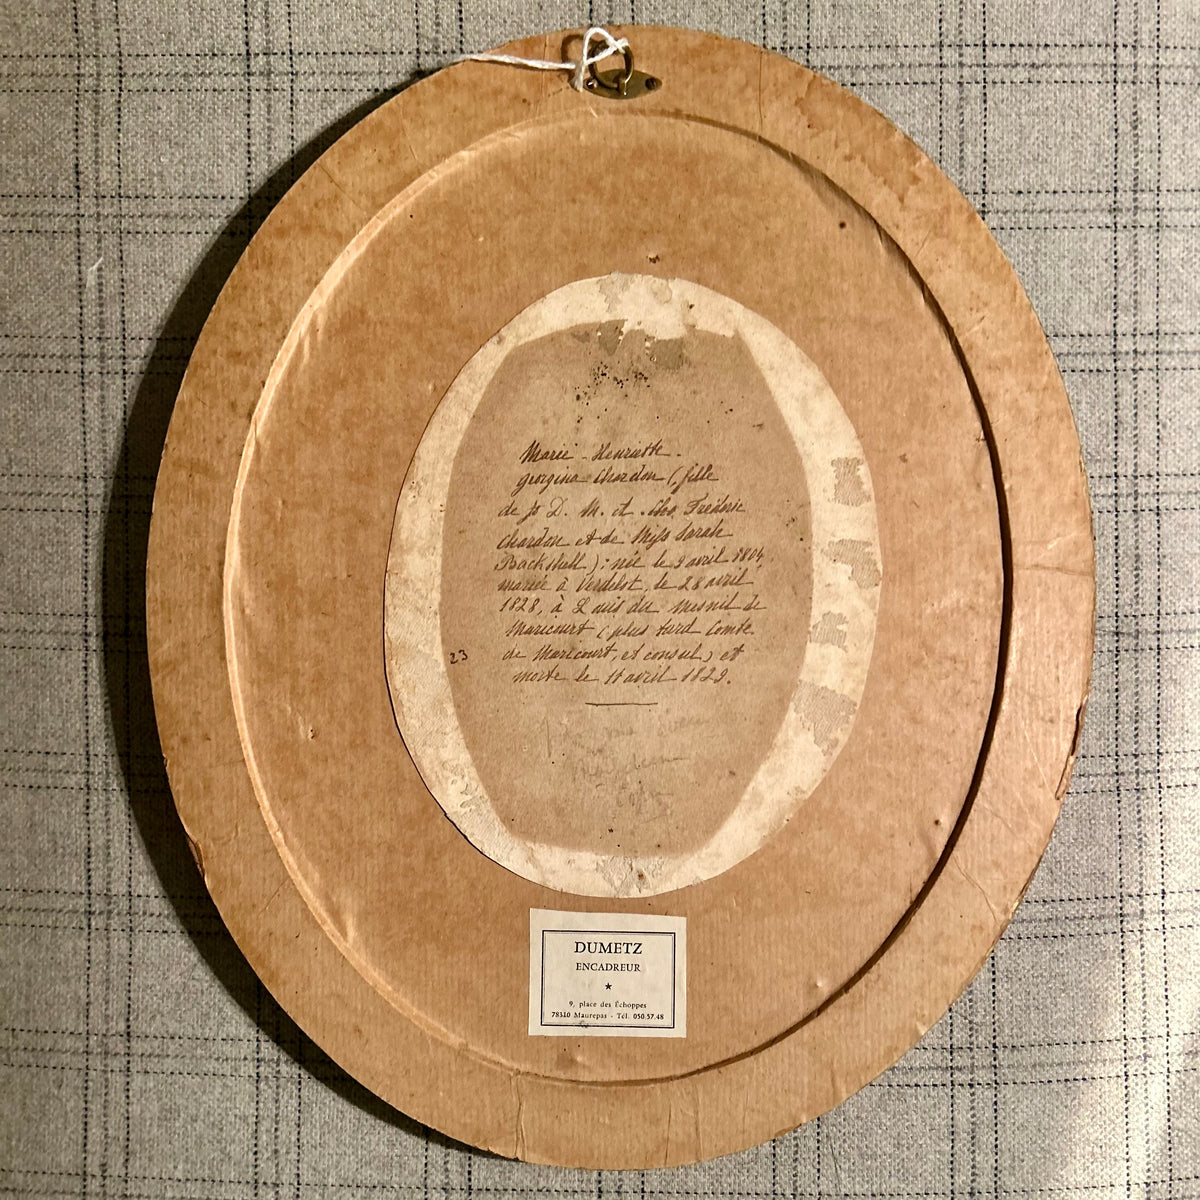 Marie - Henriette.
georgina Chardon (fille
de D. M. et Frédéric
chardon et de Miss Sarah
Backshell) : née le 9 avril 1804,
mariée à Verdelot, le 28 avril
1828, à Louis du Mesnil de
Maricourt (plus tard Comte
de Maricourt, et consul) et
23
morte le 11 avril 1829.
DUMETZ
ENCADREUR
9, place des Échoppes
78310 Maurepas - Tél. 050.57.48